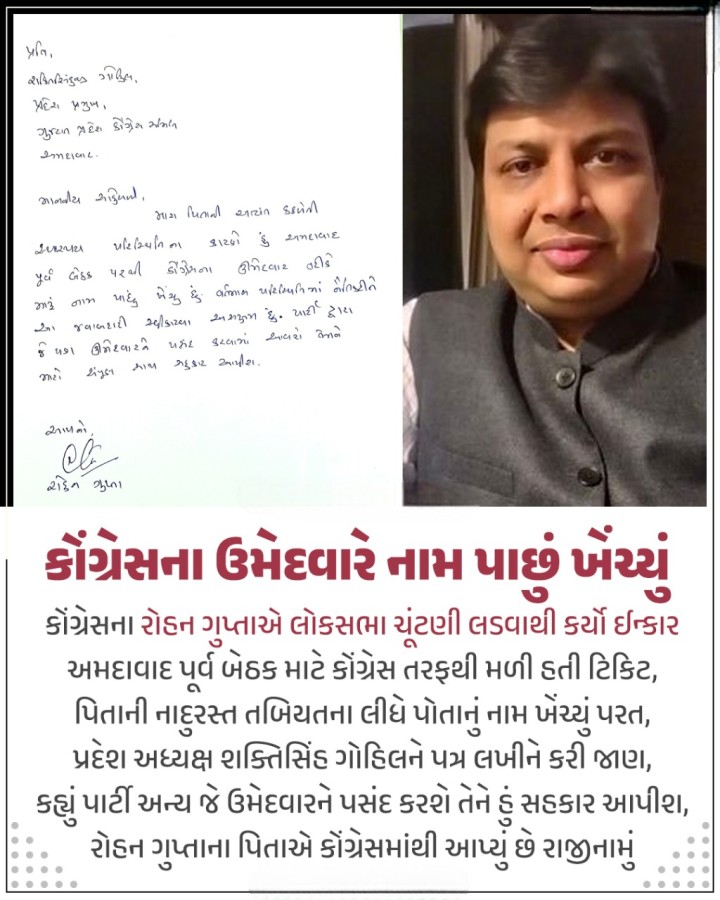 પ્રતિ,
શક્તિસિંહજી ગોહિલ,
પ્રદેશ પ્રમુખ,
ગુજરાત પ્રદેશ કોંગ્રેસ સમિતિ
અમદાવાદ.
માનનીય સાહેબશ્રી,
મારા પિતાની અત્યંત કથળેલી
સ્વાસ્થ્ય પરિસ્થિતિના કારણે હું અમદાવાદ
પૂર્વ બેઠક પરથી કોંગ્રેસના ઉમેદવાર તરીકે
મારું નામ પાછું ખેંચુ છું. વર્તમાન પરિસ્થિતિમાં
આ જવાબદારી સ્વીકારવા અસમર્થ છું. પાર્ટી દ્વારા
જે પણ ઉમેદવારને પસંદ કરવામાં આવશે તેમને
મારો સંપૂર્ણ સાથ સહકાર આપીશ.
આપનો,
રોહન ગુપ્તા
કોંગ્રેસના ઉમેદવારે નામ પાછું ખેંચ્યું
કોંગ્રેસના રોહન ગુપ્તાએ લોકસભા ચૂંટણી લડવાથી કર્યો ઈન્કાર
અમદાવાદ પૂર્વ બેઠક માટે કોંગ્રેસ તરફથી મળી હતી ટિકિટ,
પિતાની નાદુરસ્ત તબિયતના લીધે પોતાનું નામ ખેંચ્યું પરત,
પ્રદેશ અધ્યક્ષ શક્તિસિંહ ગોહિલને પત્ર લખીને કરી જાણ,
કહ્યું પાર્ટી અન્ય જે ઉમેદવારને પસંદ કરશે તેને હું સહકાર આપીશ,
રોહન ગુપ્તાના પિતાએ કોંગ્રેસમાંથી આપ્યું છે રાજીનામું